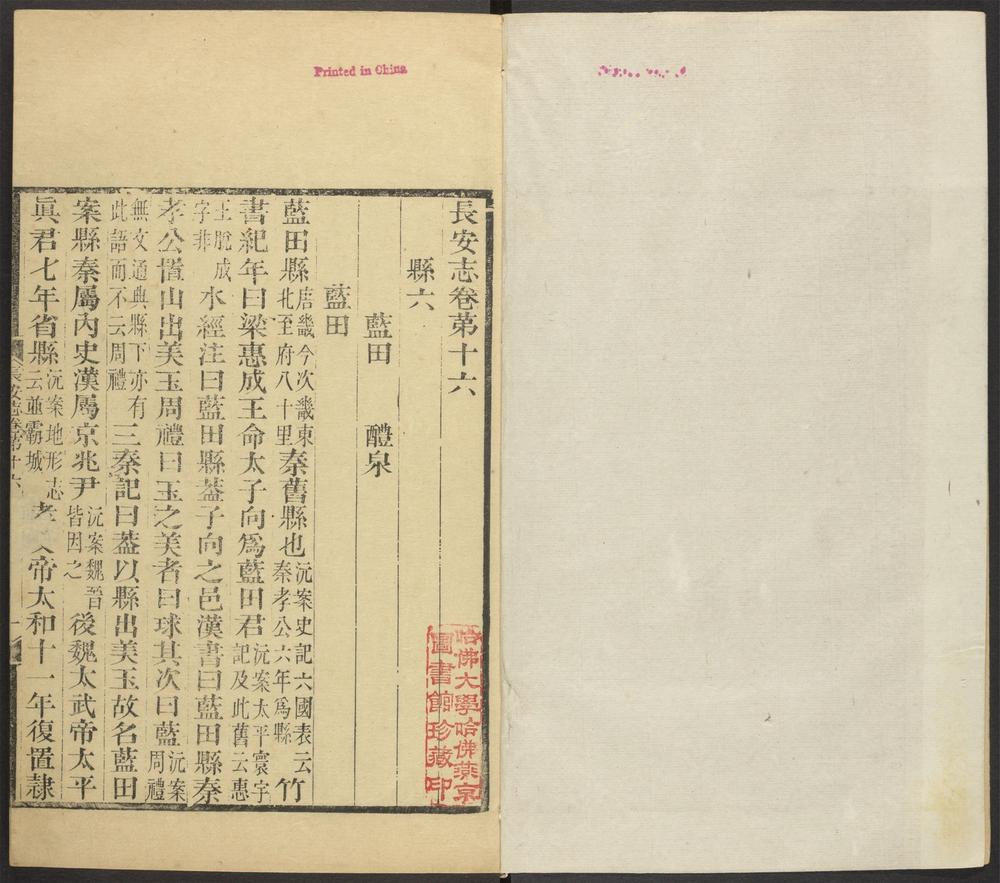 Printed in China
長安志卷第十六
縣六
藍田 醴泉
藍田
藍田縣唐畿今次畿東北至府八十里秦舊縣也沅案史記六國表云秦孝公六年爲縣竹
書紀年曰梁惠成王命太子向爲藍田君沅案太平寰宇記及此舊云惠
王脫成字非水經注曰藍田縣葢子向之邑漢書曰藍田縣秦
孝公置山出美玉周禮曰玉之美者曰球其次曰藍沅案周禮
無文通典縣下亦有此語而不云周禮三秦記曰葢以縣出美玉故名藍田
案縣秦屬內史漢屬京兆尹沅案魏晉皆因之後魏太武帝太平
眞君七年省縣沅案地形志云並霸城孝帝太和十一年復置隸
長安志卷第十六
一
哈佛大學哈佛燕京
圖書館珍藏印